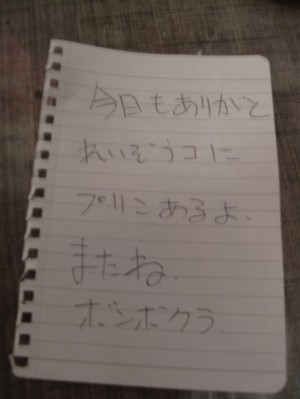 今日もありがと
れいぞうコに
プリンあるよ.
またね.
ボンボクラ.